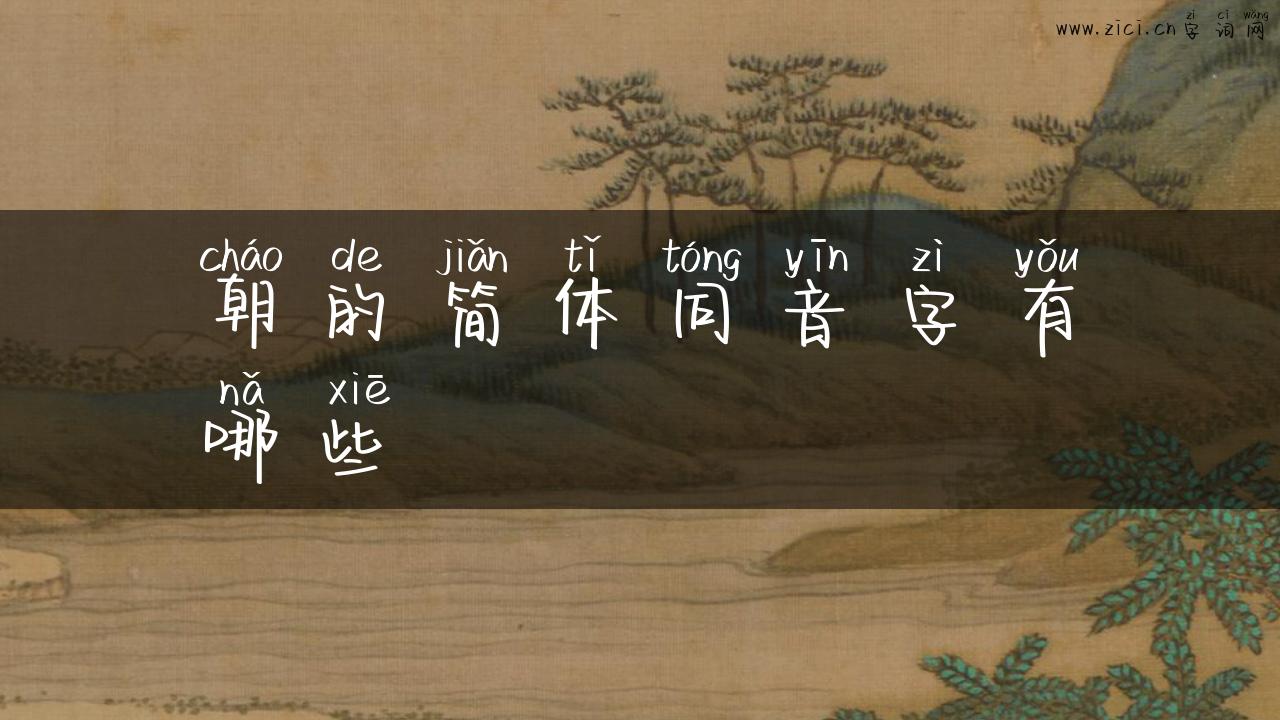 zì cí wǎng
www.zici.cn 字词网
cháo de jiǎn tǐ tóng yīn zì yǒu
朝的简体同音字有
nǎ xiē
哪些